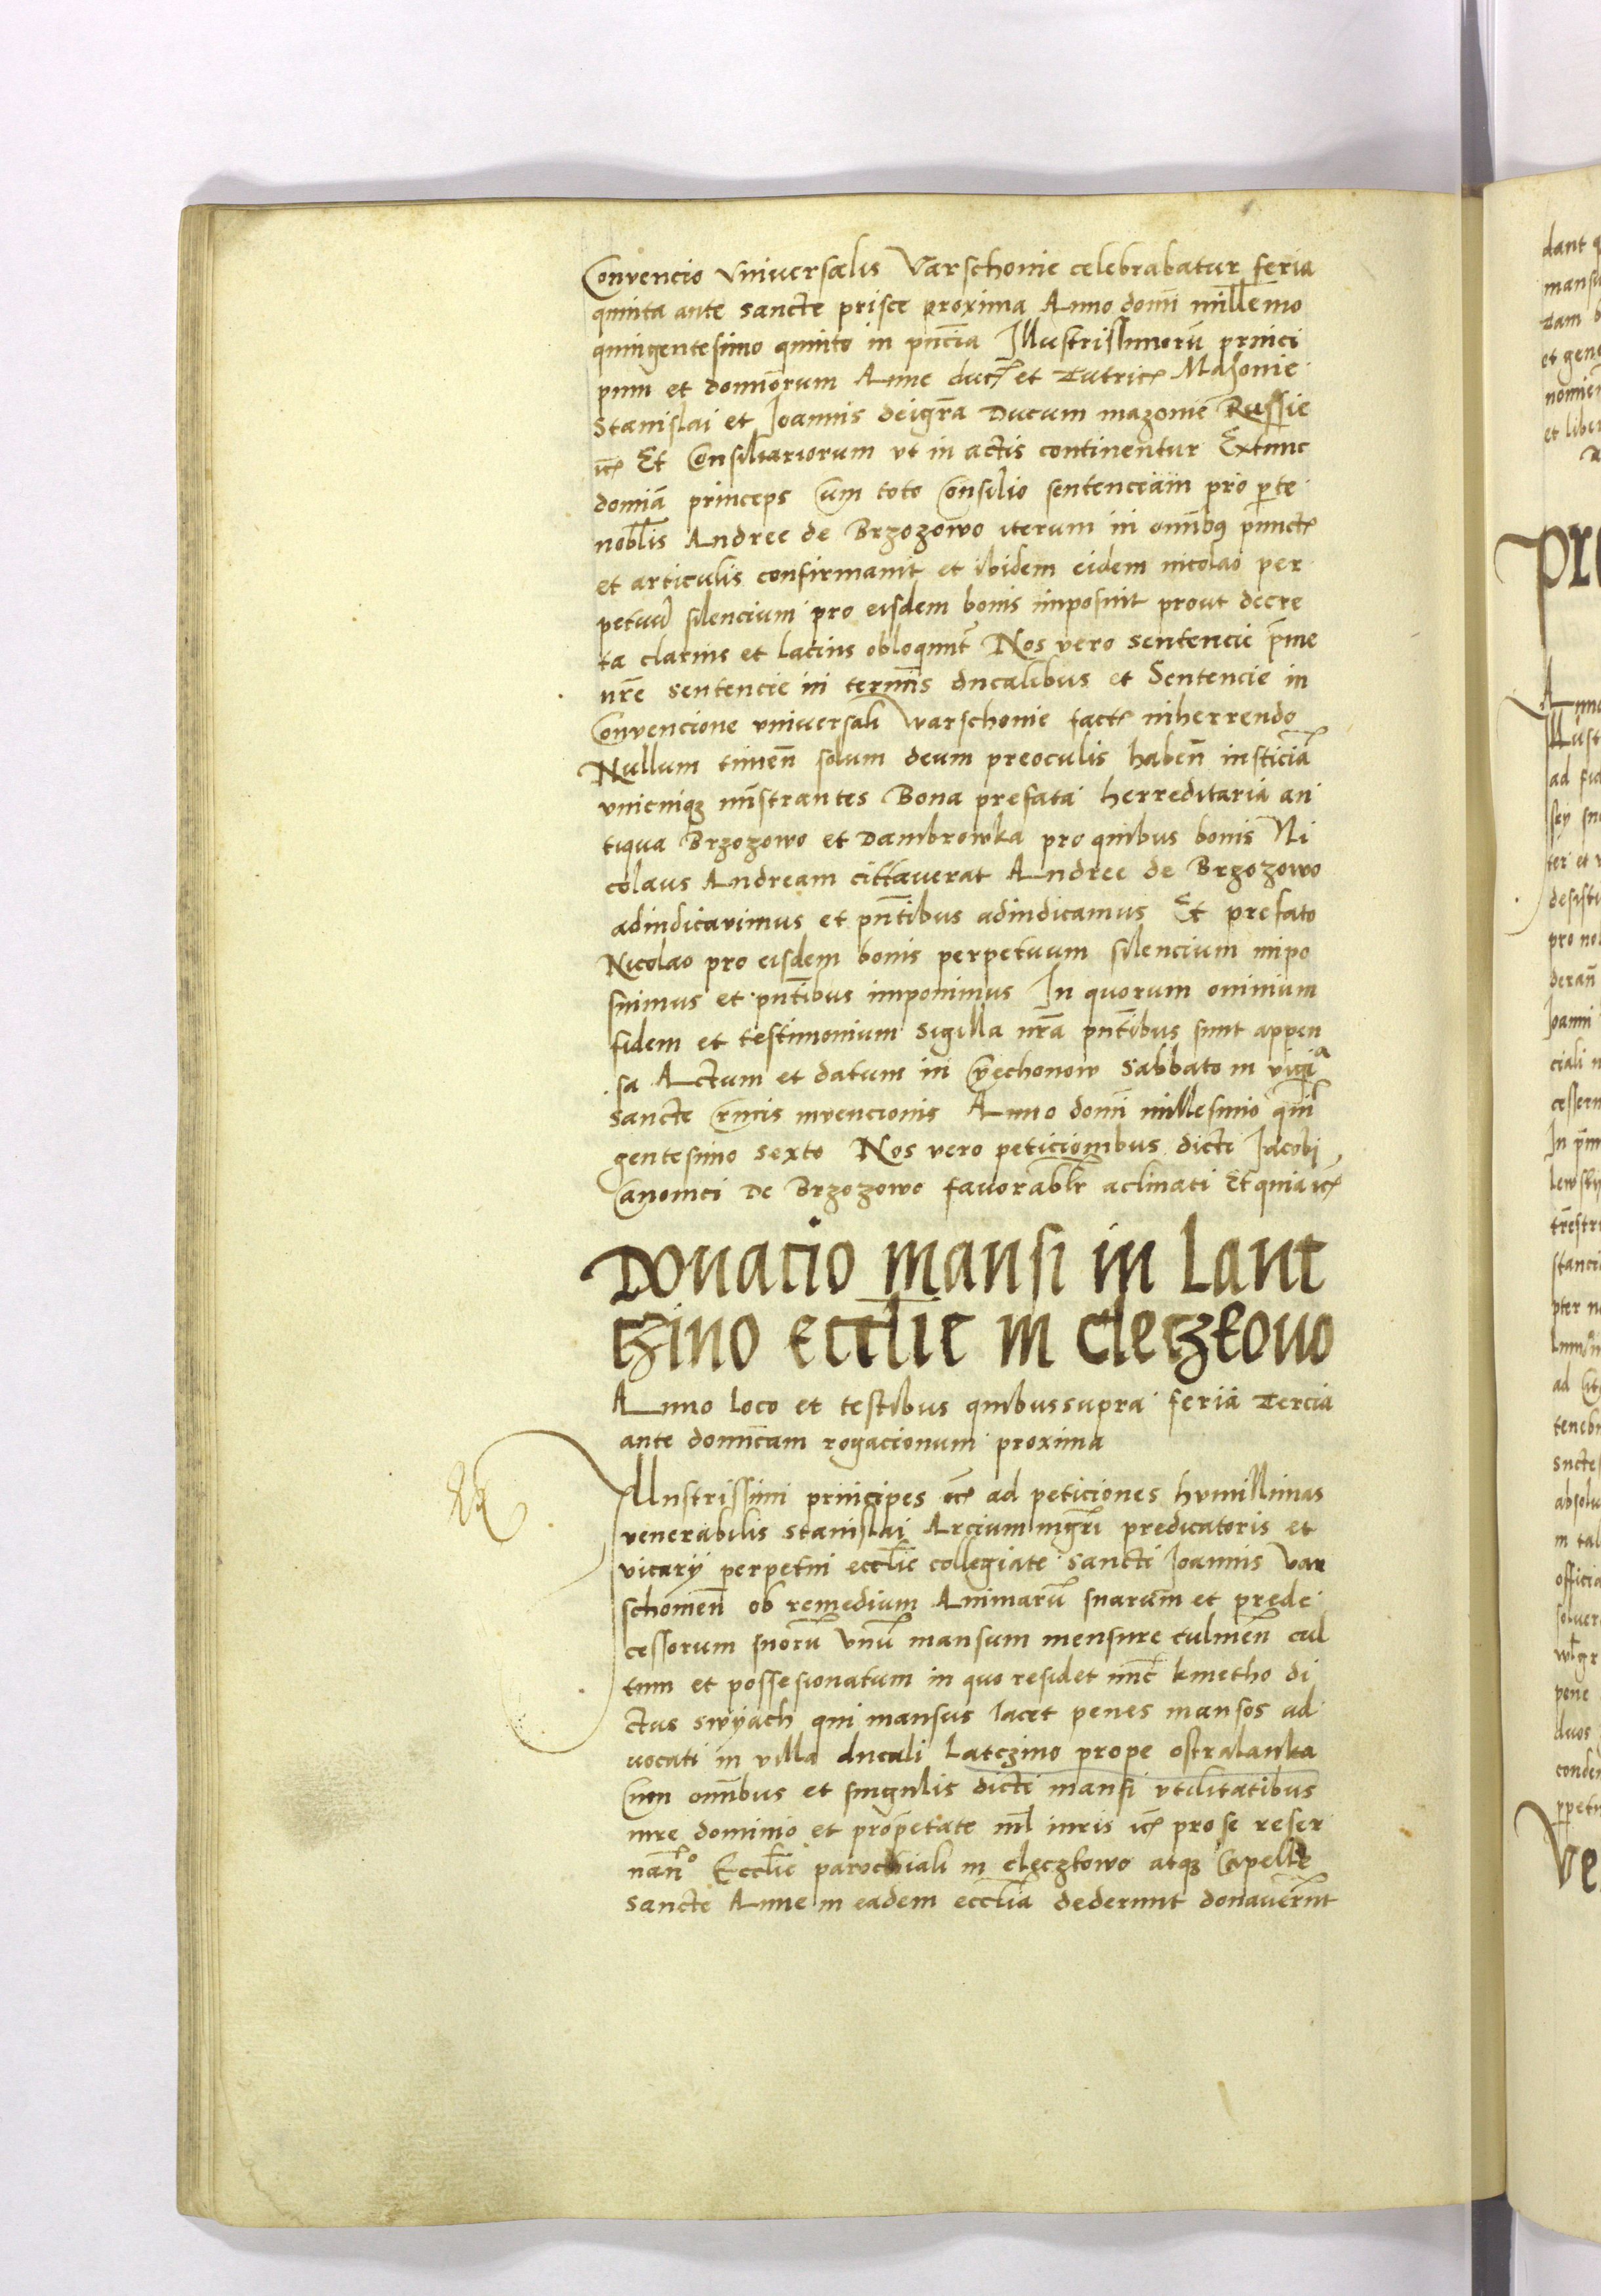 Convencio vniversalis Varschonie celebrabatur feria
quinta ante sancte prisce proxima Anno domī millemo
quingentesimo quinto in pn̄cia Illustrissimorū princi
pum et dominorum Anne duc̄ et Tutric̄ Mazonie
Stanislai et Joannis dei gr̄a Ducum mazonie Russie
ic̄ Et Consiliariorum vt in actis continentur Extunc
domīa princeps Cum toto Consilio sentenciam pro p̄te
nobl̄is Andree de Brzozowo iterum in om̄ibq punct̄
et articulis confirmauit et ibidem eidem nicolao per
petuū silencium pro eisdem bonis imposuit prout decre
ta clarius et lacius obloqunt̄ Nos vero sentencie p̄me
nr̄e sentencie in termīs ducalibus et Sentencie in
Convencione vniversali warschonie fact̄ inherrendo
Nullum timen̄ solum deum preoculis haben̄ iusticiā
vnicuiqz mīstrantes Bona prefata herreditaria an
tiqua Brzozowo et Dambrowka pro quibus bonis Ni
colaus Andream cittauerat Andree de Brzozowo
adiudicavimus et pn̄tibus adiudicamus Et prefato
Nicolao pro eisdem bonis perpetuum silencium impo
suimus et pn̄tibus imponimus In quorum omnium
fidem et testimonium sigilla nr̄a pn̄tibus sunt appen
sa Actum et datum in Czechonow Sabbato in vigiᵃ
sancte Crucis invencionis Anno domī millesimo quī
gentesimo sexto Nos vero peticionibus dicti Jacobi
Canonici De Brzozowo favorabl̄r aclinati Et quia ic̄
Donacio mansi in Lant
czino eccl̄ie in Cleczkouo
Anno loco et testibus quibussupra feria Tercia
ante domīcam rogacionum proxima
Illustrissimi principes ec̄ ad peticiones humillimas
venerabilis Stanislai Arcium mgr̄i predicatoris et
vicarij perpetui eccl̄ie collegiate sancti Joannis Var
schonien̄ ob remedium Animarū suarum et prede
cessorum suorū Vnū mansum mensure culmen̄ cul
tum et possesionatum in quo residet nūc kmetho di
ctus swyach qui mansus Iacet penes mansos ad
uocati in villa ducali Latczino prope ostralanka
Cum om̄ibus et singulis dicti mansi vtilitatibus
iure dominio et propetate nīl iuris ic̄ pro se reser
uan̄º Eccl̄ie parochiali in cleczkowo atqz Capelle
sancte Anne in eadem eccl̄ia dederunt donaver̄nt